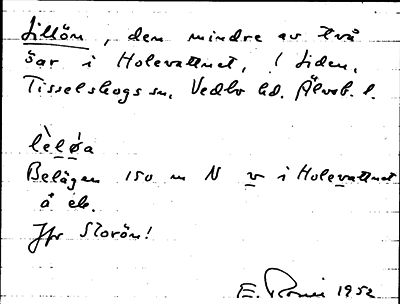 Lillön, den mindre av två
öar i Holevattnet, i Liden,
Tisselskogs sn, Vedbo hd. Älvsb. l.
lèløa
Belägen 150 m N v i Holevattnet
å ek.
Jfr Storön!
E. 1952